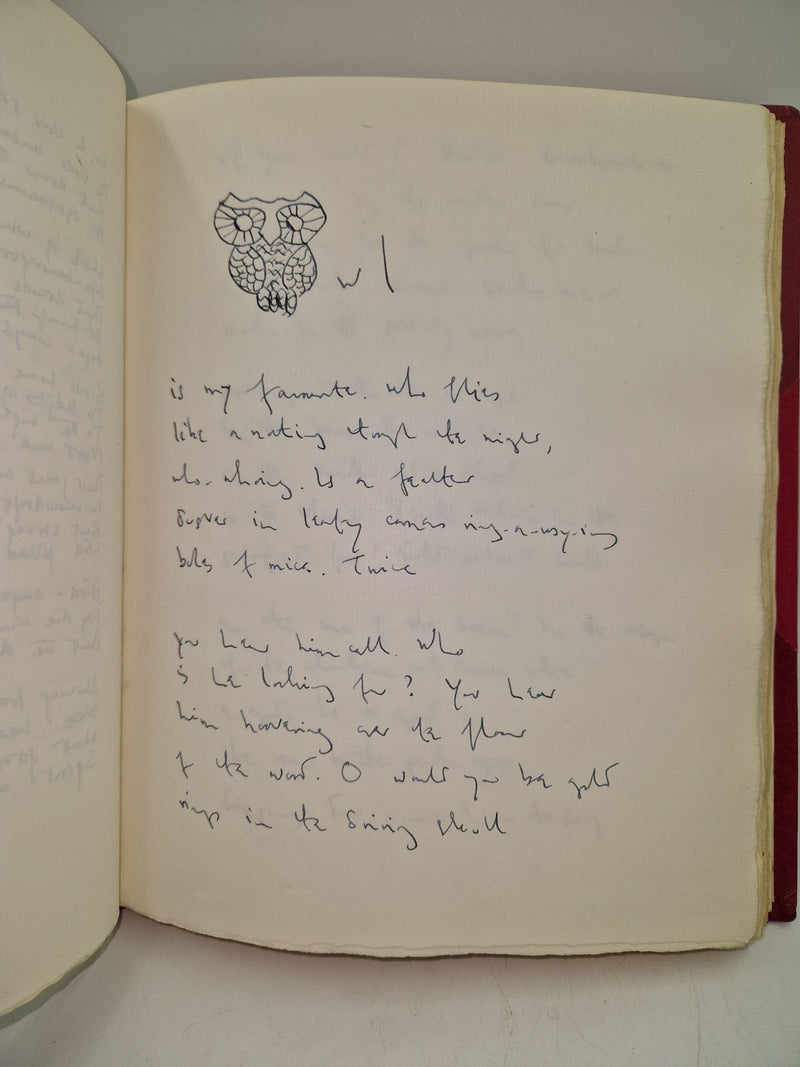 wl
is my favourite. Who flies
like a nothing through the night,
who-whoing. Is a feather
duster in leafy corners ring-a-rosy-ing
boles of mice. Twice
you hear him call. Who
is he looking for? You hear
him hoovering over the floor
of the wood. O would you be gold
rings in the driving skull